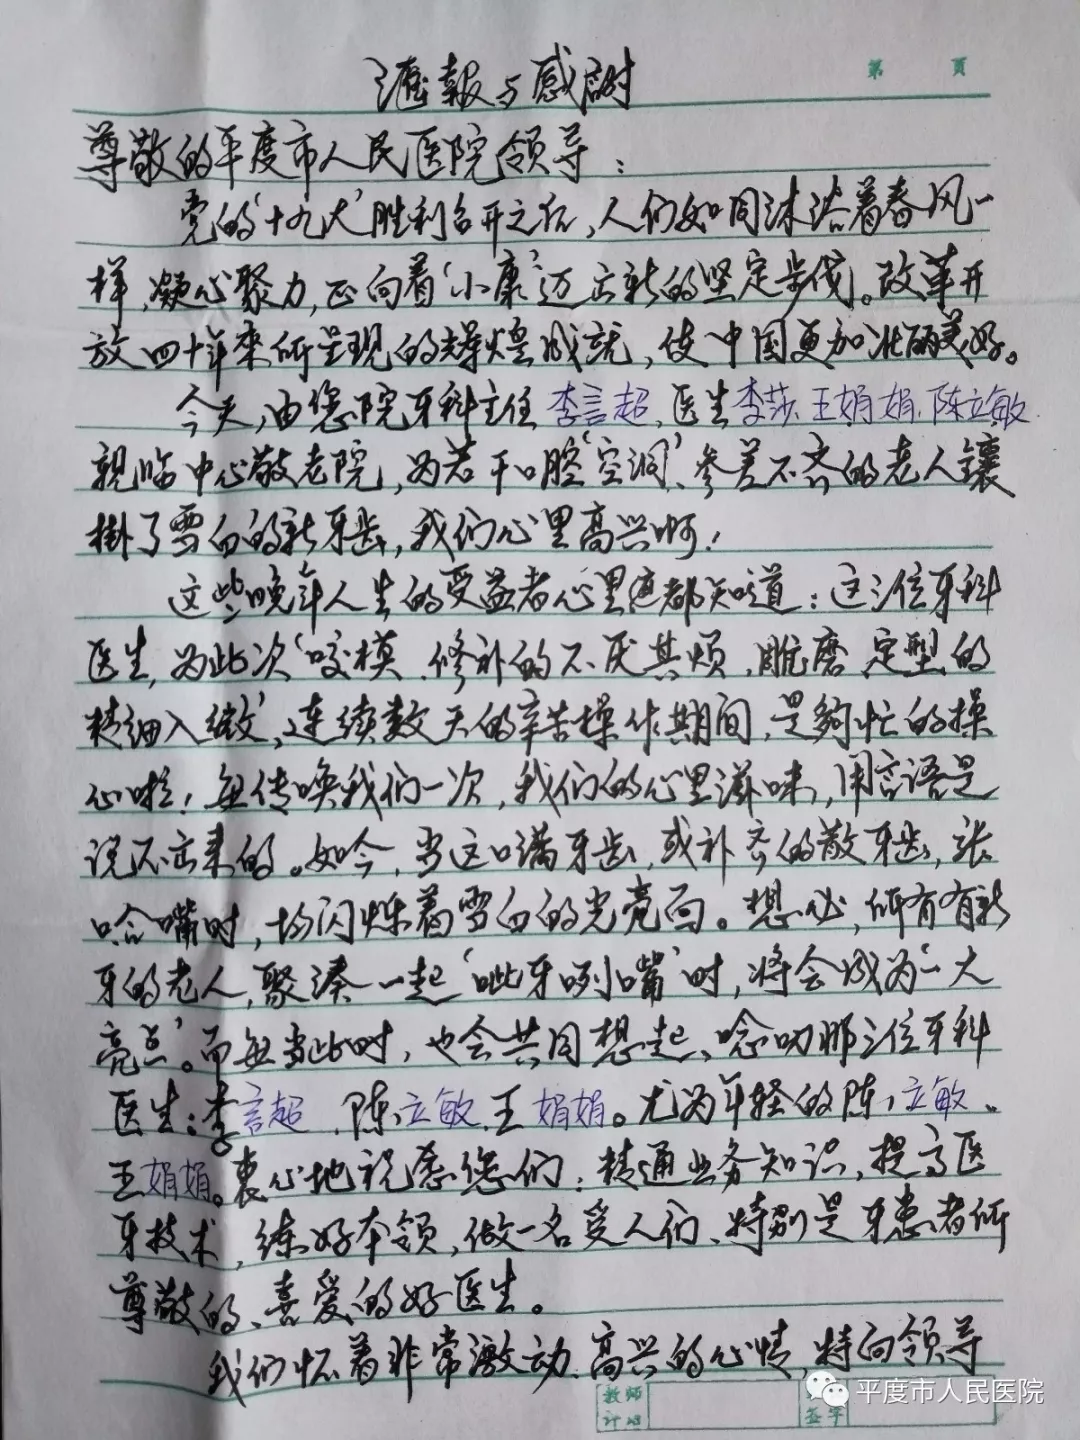 第 页
滙報与感謝
尊敬的平度市人民医院领导：
党的'十九大'胜利召开之后，人们如同沐浴着春风一
样，凝心聚力，正向着'小康'迈出新的坚定步伐。改革开
放四十年来所呈现的辉煌成就，使中国更加壮丽美好。
今天，由您院牙科主任李言超，医生李莎、王娟娟、陈立敏
親临中心敬老院，为若干口腔'空洞'、参差不齐的老人镶
掛了雪白的新牙齿，我们心里高兴啊！
这些晚年人生的受益者心里都知道：这三位牙科
医生，为此次'咬模、修补的不厌其烦，雕磨、定型的
精细入微'，连续数天的辛苦操作期间，是夠忙的操
心啦！每传唤我们一次，我们的心里滋味，用言语是
说不出来的。如今，当这口满牙齿，或补齐的散牙齿，张
哈嘴时，均闪烁着雪白的光亮面。想必，所有有新
牙的老人，聚凑一起'呲牙咧嘴'时，将会成为'一大
亮点'。而每当此时，也会共同想起、唸叨那三位牙科
医生：李言超、陈立敏、王娟娟。尤为年轻的陈立敏、
王娟娟。衷心地祝愿您们：精通业务知识，提高医
牙技术，练好本领，做一名受人们、特别是牙患者所
尊敬的、喜爱的好医生。
我们怀着非常激动、高兴的心情，特向领导
教师
签字
平度市人民医院